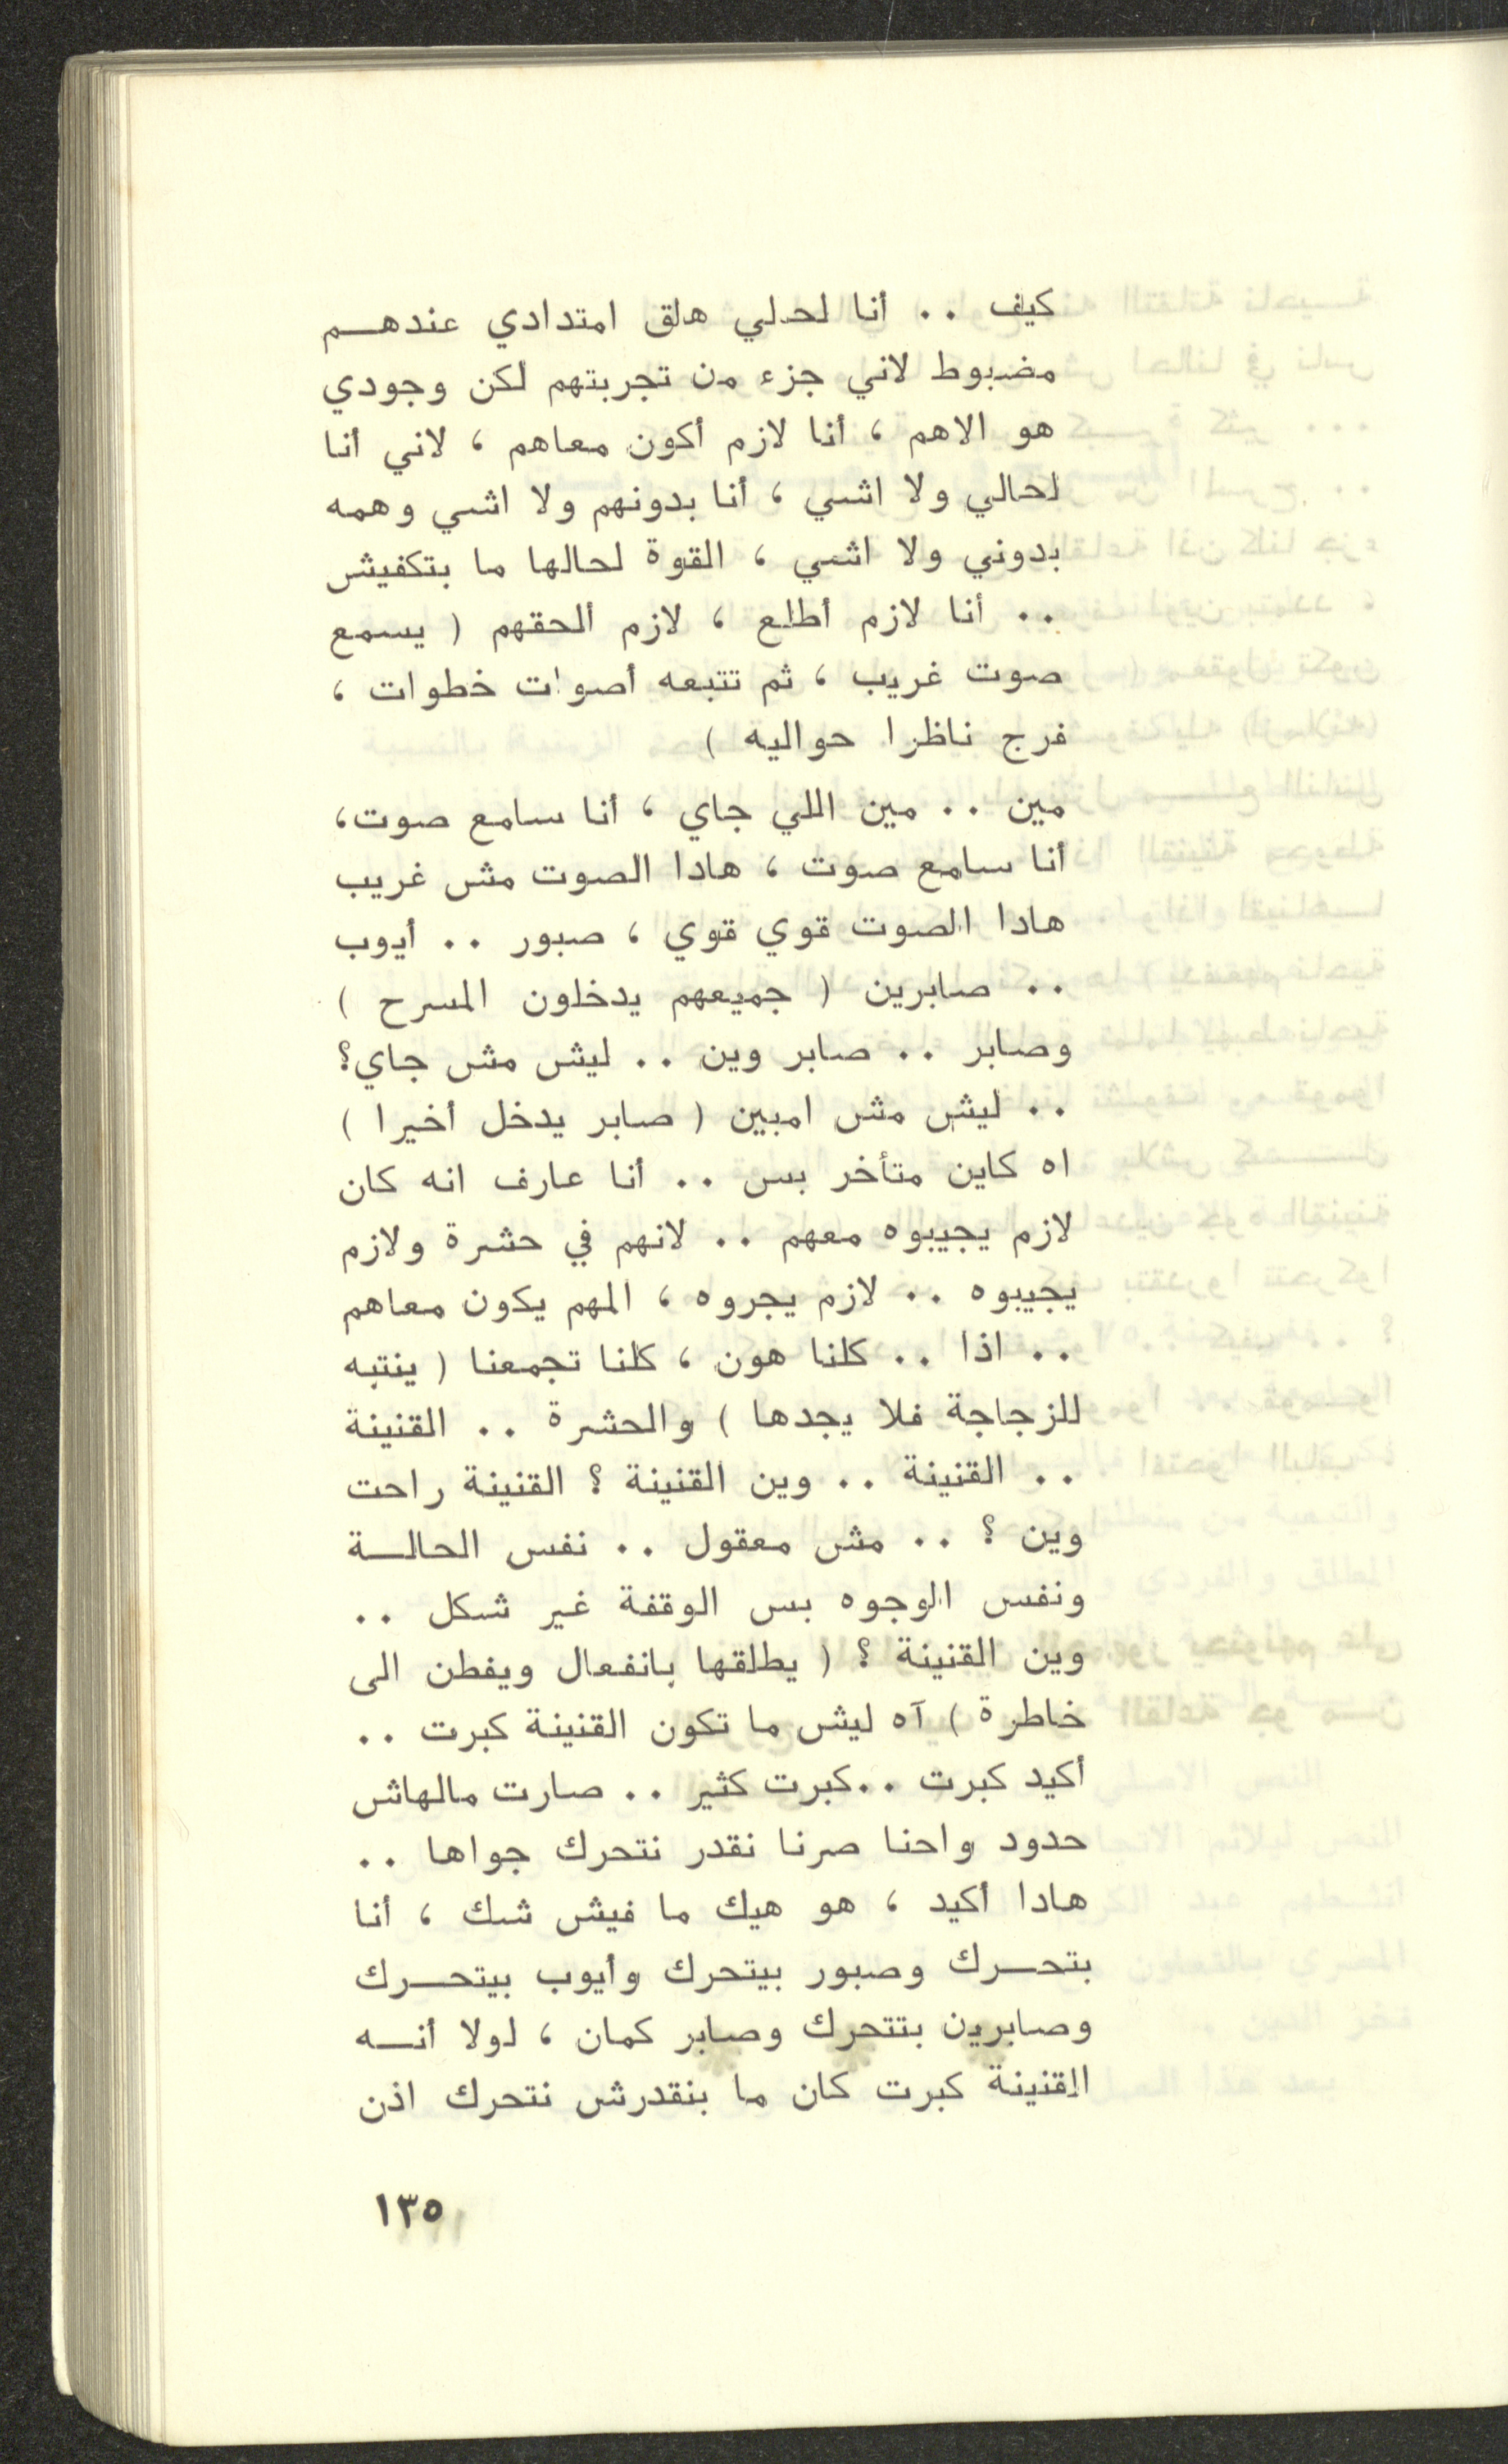 كيف .. أنا لحالي هلق امتدادي عندهم
مضبوط لاني جزء من تجربتهم لكن وجودي
هو الاهم ، أنا لازم أكون معاهم ، لاني أنا
لحالي ولا اشي ، أنا بدونهم ولا اشي وهمه
بدوني ولا اشي ، القوة لحالها ما بتكفيش
.. أنا لازم أطلع ، لازم ألحقهم ( يسمع
صوت غريب ، ثم تتبعه أصوات خطوات ،
فرج ناظرا حواليه )
مين .. مين اللي جاي ، أنا سامع صوت،
أنا سامع صوت ، هادا الصوت مش غريب
هادا الصوت قوي قوي ، صبور .. أيوب
.. صابرين ( جميعهم يدخلون المسرح )
وصابر .. صابر وين .. ليش مش جاي؟
.. ليش مش امبين ( صابر يدخل أخيرا )
اه كاين متأخر بس .. أنا عارف انه كان
لازم يجيبوه معهم .. لانهم في حشرة ولازم
يجيبوه .. لازم يجروه ، المهم يكون معاهم
.. اذا .. كلنا هون ، كلنا تجمعنا ( ينتبه
للزجاجة فلا يجدها ) والحشرة .. القنينة
.. القنينة .. وين القنينة ؟ القنينة راحت
وين ؟ .. مش معقول .. نفس الحالة
ونفس الوجوه بس الوقفة غير شكل ..
وين القنينة ؟ ( يطلقها بانفعال ويفطن الى
خاطرة ) آه ليش ما تكون القنينة كبرت ..
أكيد كبرت ..كبرت كثير .. صارت مالهاش
حدود واحنا صرنا نقدر نتحرك جواها ..
هادا أكيد ، هو هيك ما فيش شك ، أنا
بتحرك وصبور بيتحرك وأيوب بيتحرك
وصابرين بتتحرك وصابر كمان ، لولا أنه
القنينة كبرت كان ما بنقدرش نتحرك اذن
١٣٥